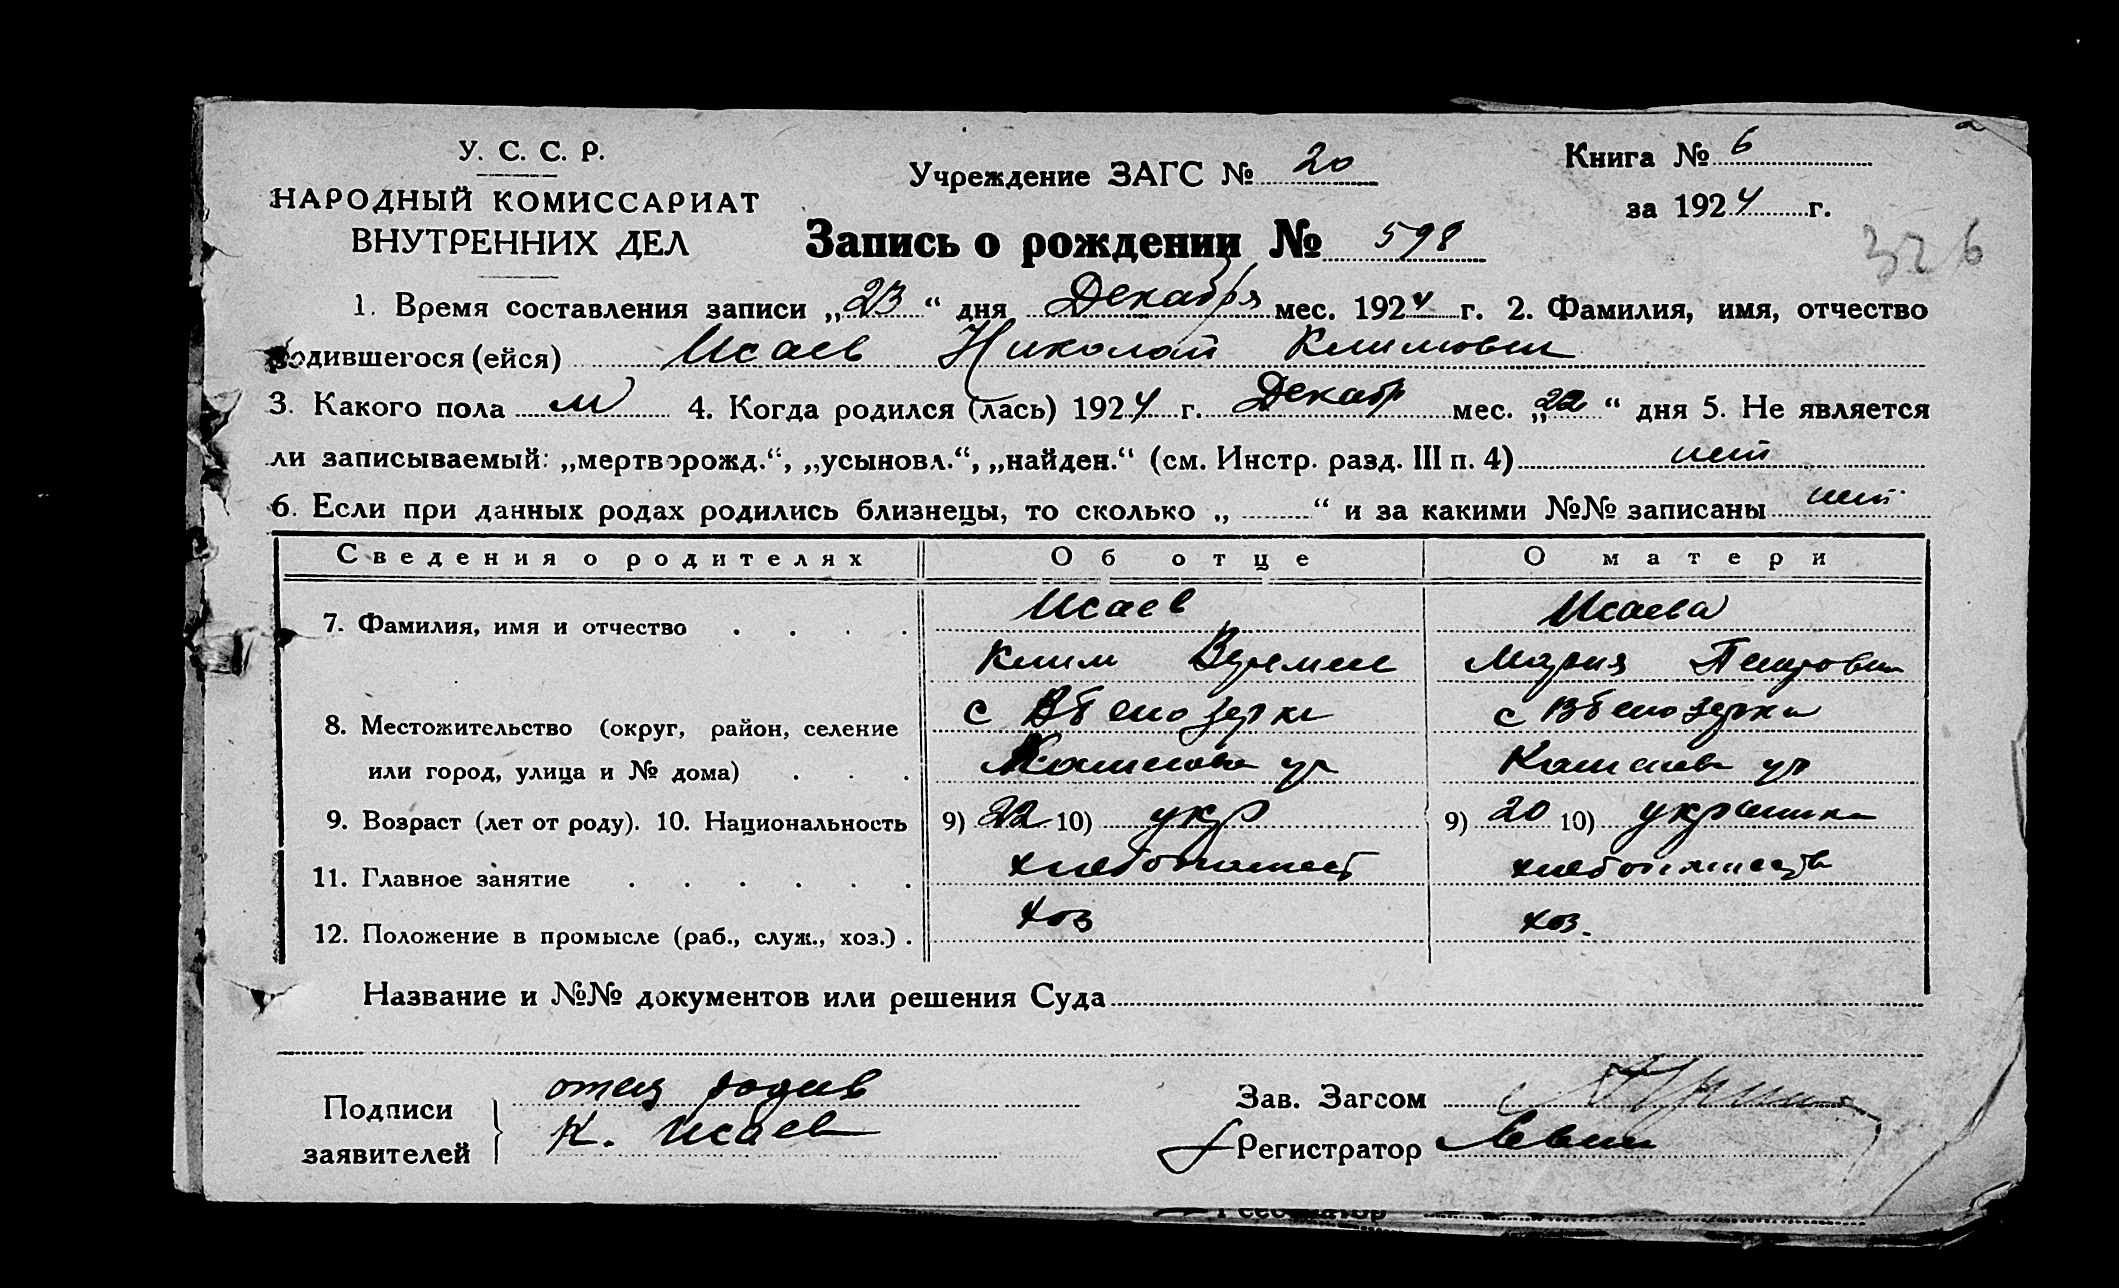 У. С. С. Р.
НАРОДНЫЙ КОМИССАРИАТ
ВНУТРЕННИХ ДЕЛ
Учреждение ЗАГС № 20
Книга № 6
за 1924 г.
Запись о рождении № 598
326
1. Время составления записи „23“ дня Декабря мес. 1924 г. 2. Фамилия, имя, отчество
родившегося (ейся) Исаев Николай Климович
3. Какого пола м 4. Когда родился (лась) 1924 г. Декабр мес. „22“ дня 5. Не является
ли записываемый: „мертворожд.“, „усыновл.“, „найден.“ (см. Инстр. разд. III п. 4) нет
6. Если при данных родах родились близнецы, то сколько „ “ и за какими №№ записаны нет
Сведения о родителях Об отце О матери
7. Фамилия, имя и отчество Исаев Исаева
Клим Мария Петровна
8. Местожительство (округ, район, селение с с
или город, улица и № дома) ул ул
9. Возраст (лет от роду). 10. Национальность 9) 22 10) укр 9) 20 10) украинка
11. Главное занятие хлебопашест хлебопашеств
12. Положение в промысле (раб., служ., хоз.) хоз хоз.
Название и №№ документов или решения Суда
Подписи заявителей отец
К. Исаев
Зав. Загсом
Регистратор Левин